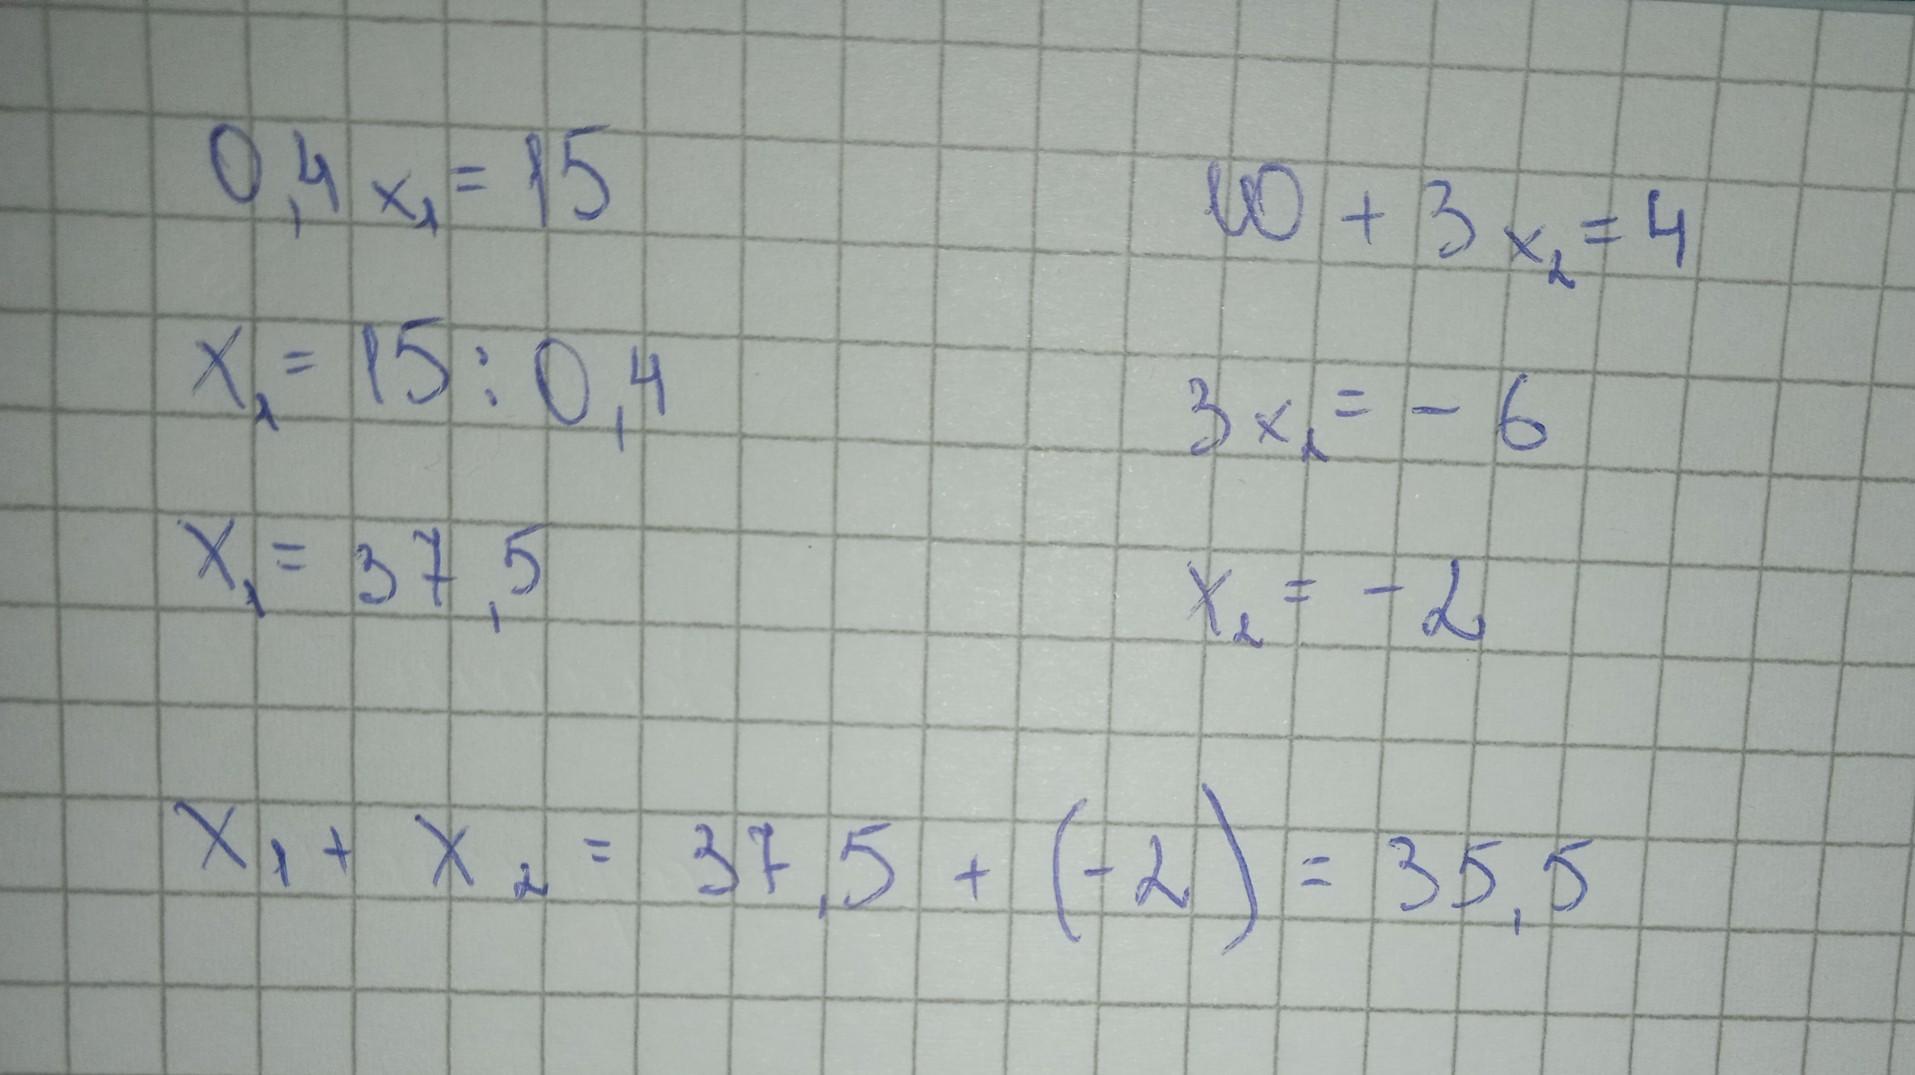 0,4 x₁ = 15
x₁ = 15 : 0,4
x₁ = 37,5
10 + 3 x₂ = 4
3 x₂ = - 6
x₂ = - 2
x₁ + x₂ = 37,5 + (-2) = 35,5